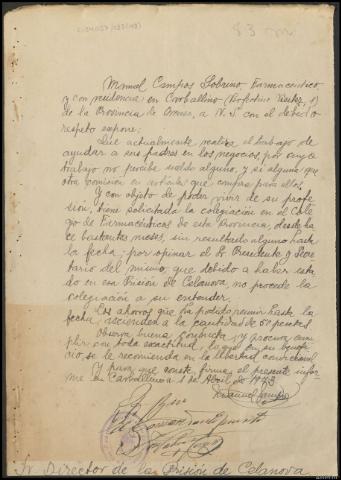 83
Manuel Campos Sobrino, Farmaceutico
y con residencia en Carballino
de la Provincia de Orense, a V. S. con el debido
respeto expone:
Que actualmente realiza el trabajo de
ayudar a sus padres en los negocios, por cuyo
trabajo no percibe sueldo alguno, y si alguna que
otra comision en articulos que compra para ellos.
Y con objeto de poder vivir de su profe
sion, tiene solicitada la colegiacion en el Cole
gio de Farmaceuticos de esta Provincia, desde ha
ce bastantes meses, sin resultado alguno hasta
la fecha, por opinar el Sr. Presidente y Secre
tario del mismo, que debido a haber esta
do en esa Prision de Celanova, no procede la
colegiacion a su entender.
Los ahorros que ha podido reunir hasta la
fecha, ascienden a la cantidad de 50 pesetas
Observa buena conducta y procura cum
plir con toda exactitud, lo que en su benefi
cio se le recomienda en la libertad condicional
Y para que conste, firma el presente infor
me en Carballino a 1 de Abril de 1943
Manuel Campos
Sr Director de la Prisión de Celanova